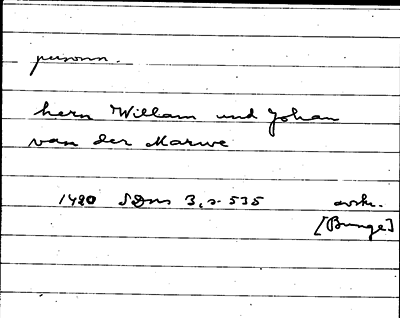 personn.
hern Willam und Johan
van der Marwe
1420 3, s. 535
[Bunge]